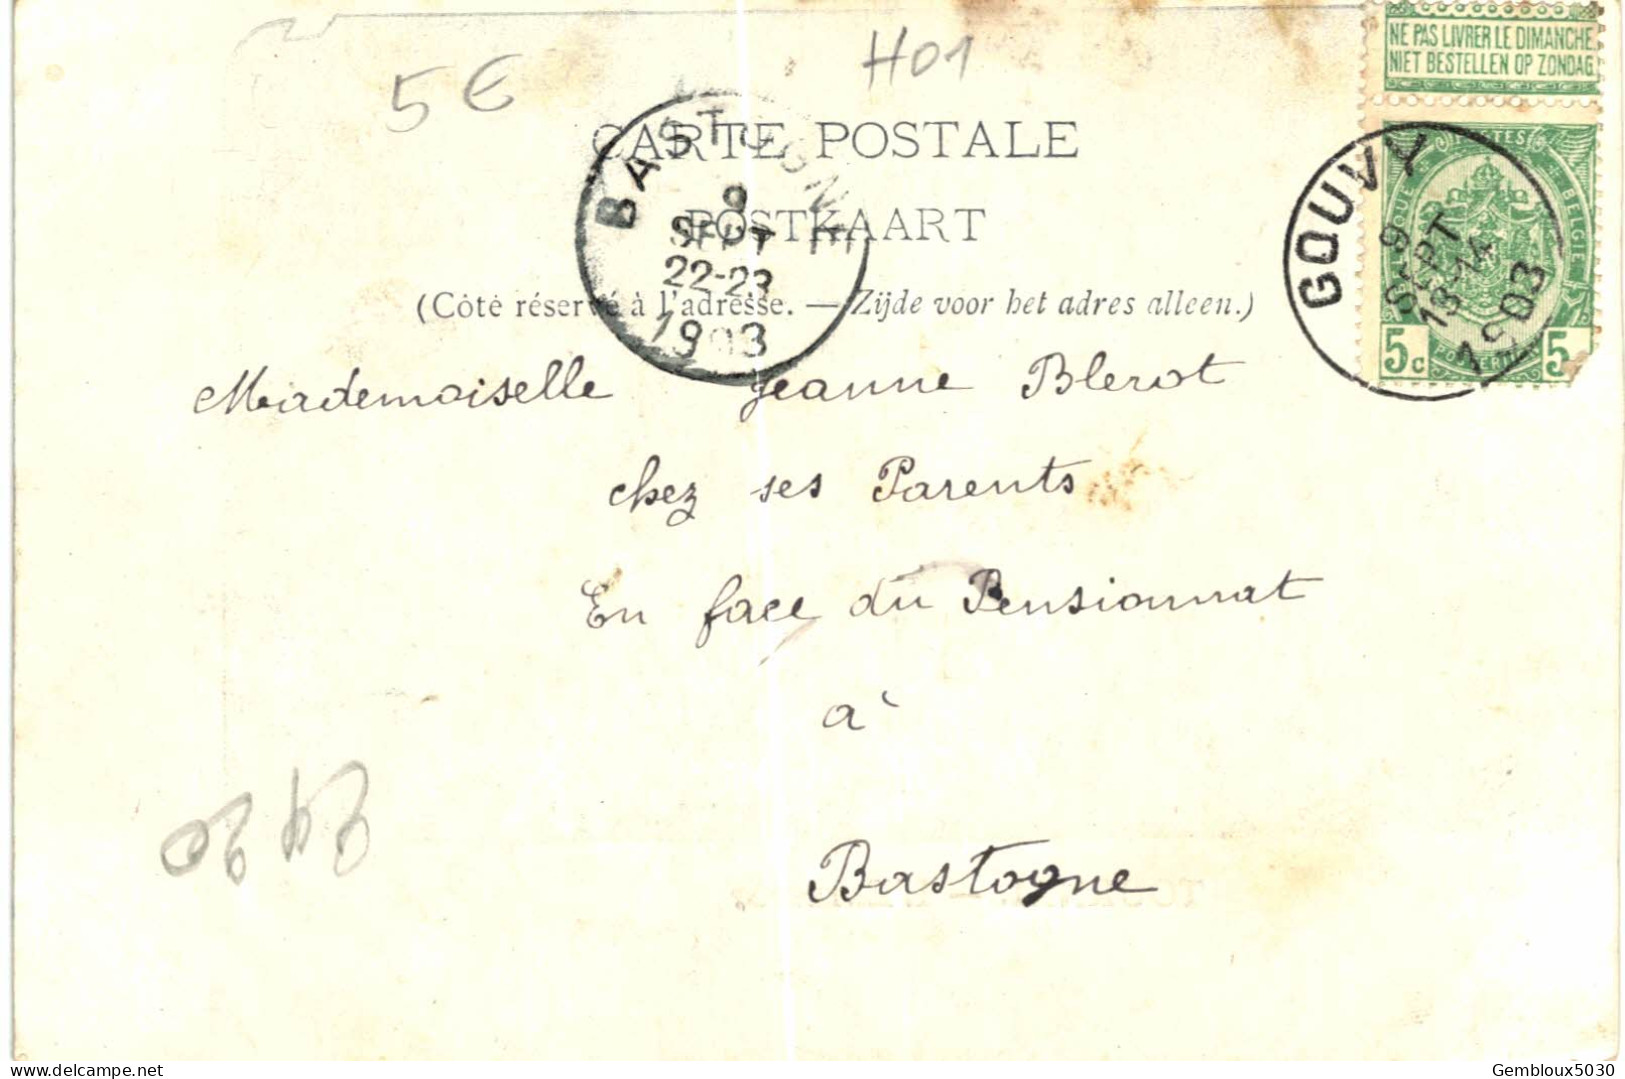 NE PAS LIVRER LE DIMANCHE
NIET BESTELLEN OP ZONDAG
5 €
H01
CARTE POSTALE
POSTKAART
(Côté réservé à l'adresse. — Zijde voor het adres alleen.)
BASTOGNE
9
SEPT
22-23
1903
GOUVY
9
SEPT
13-14
1903
BELGIE
5c 5
Mademoiselle Jeanne Blerot
chez ses Parents
En face du Pensionnat
à
Bastogne
Gembloux5030